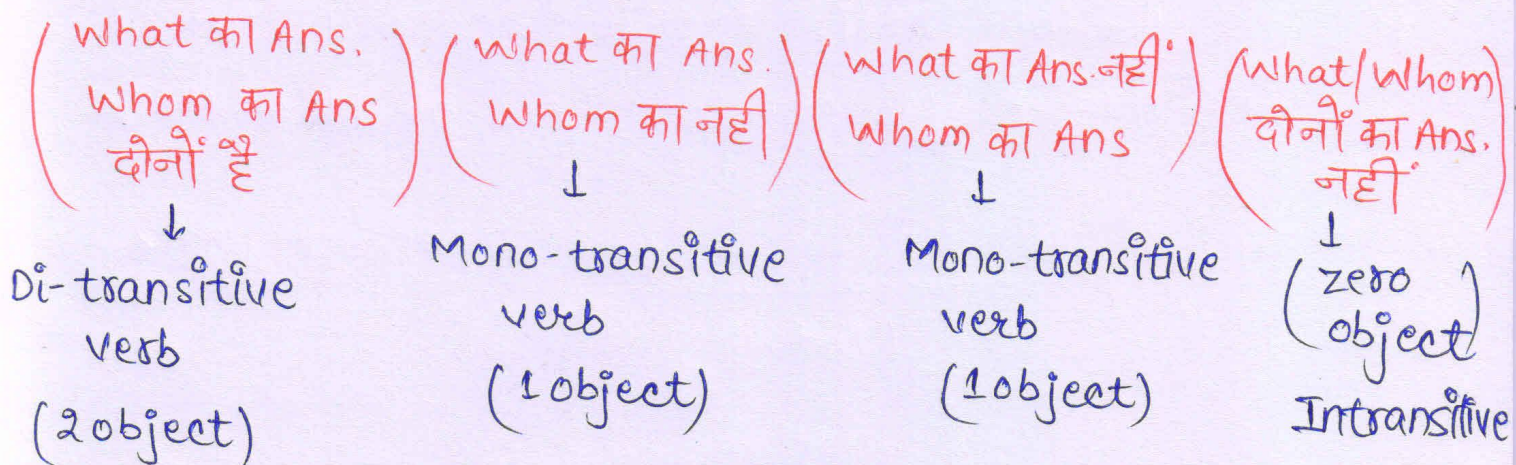 What का Ans.
Whom का Ans
दोनों है
↓
Di-transitive
verb
(2object)
What का Ans.
Whom का नही
↓
Mono-transitive
verb
(1object)
What का Ans. नहीं
Whom का Ans
↓
Mono-transitive
verb
(1object)
What/Whom
दोनों का Ans.
नहीं
↓
(zero
object)
Intransitive